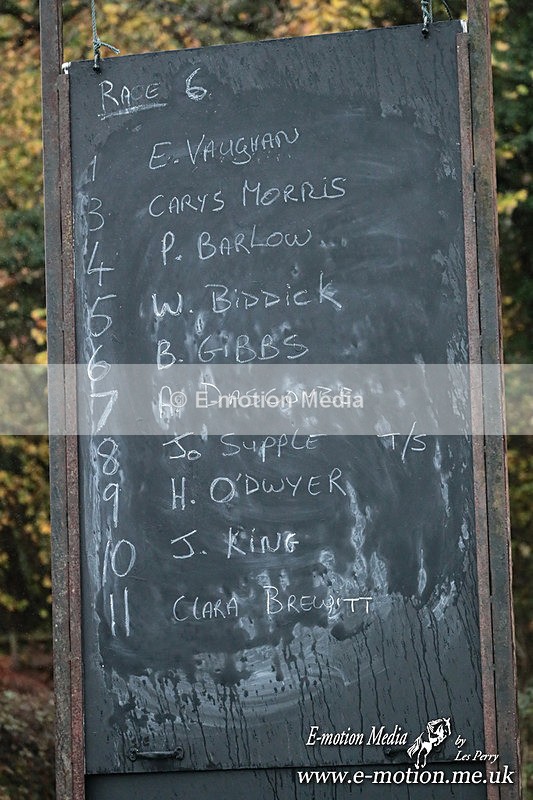 RACE 6
1 E. VAUGHAN
3 CARYS MORRIS
4 P. BARLOW
5 W. BIDDICK
6 B. GIBBS
7 A
© E-motion Media
8 Jo SUPPLE T/S
9 H. O'DWYER
10 J. KING
11 CLARA BREWITT
E-motion Media
by
Les Perry
www.e-motion.me.uk